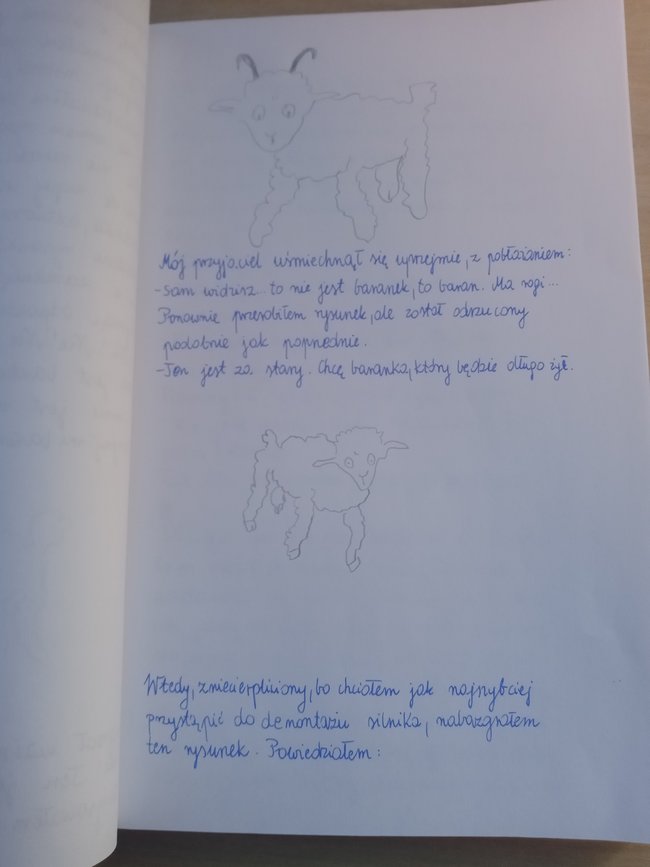 Mój przyjaciel uśmiechnął się uprzejmie, z pobłażaniem:
-Sam widzisz... to nie jest baranek, to baran. Ma rogi...
Ponownie przerobiłem rysunek, ale został odrzucony
podobnie jak poprzednie.
-Ten jest za stary. Chcę baranka, który będzie długo żył.
Wtedy, zniecierpliwiony, bo chciałem jak najszybciej
przystąpić do demontażu silnika, nabazgrałem
ten rysunek. Powiedziałem: